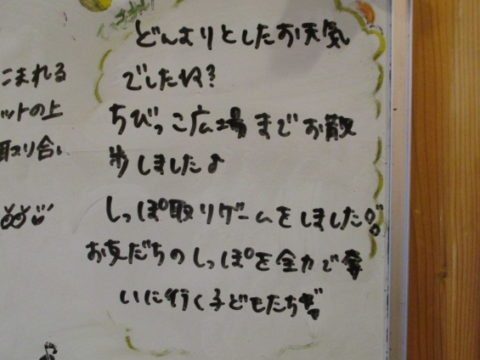 こまれる
ットの上
取り合い
どんよりとしたお天気
でしたね?
ちびっこ広場までお散
歩しました♪
しっぽ取りゲームをしました
お友だちのしっぽを全力で奪
いに行く子どもたち